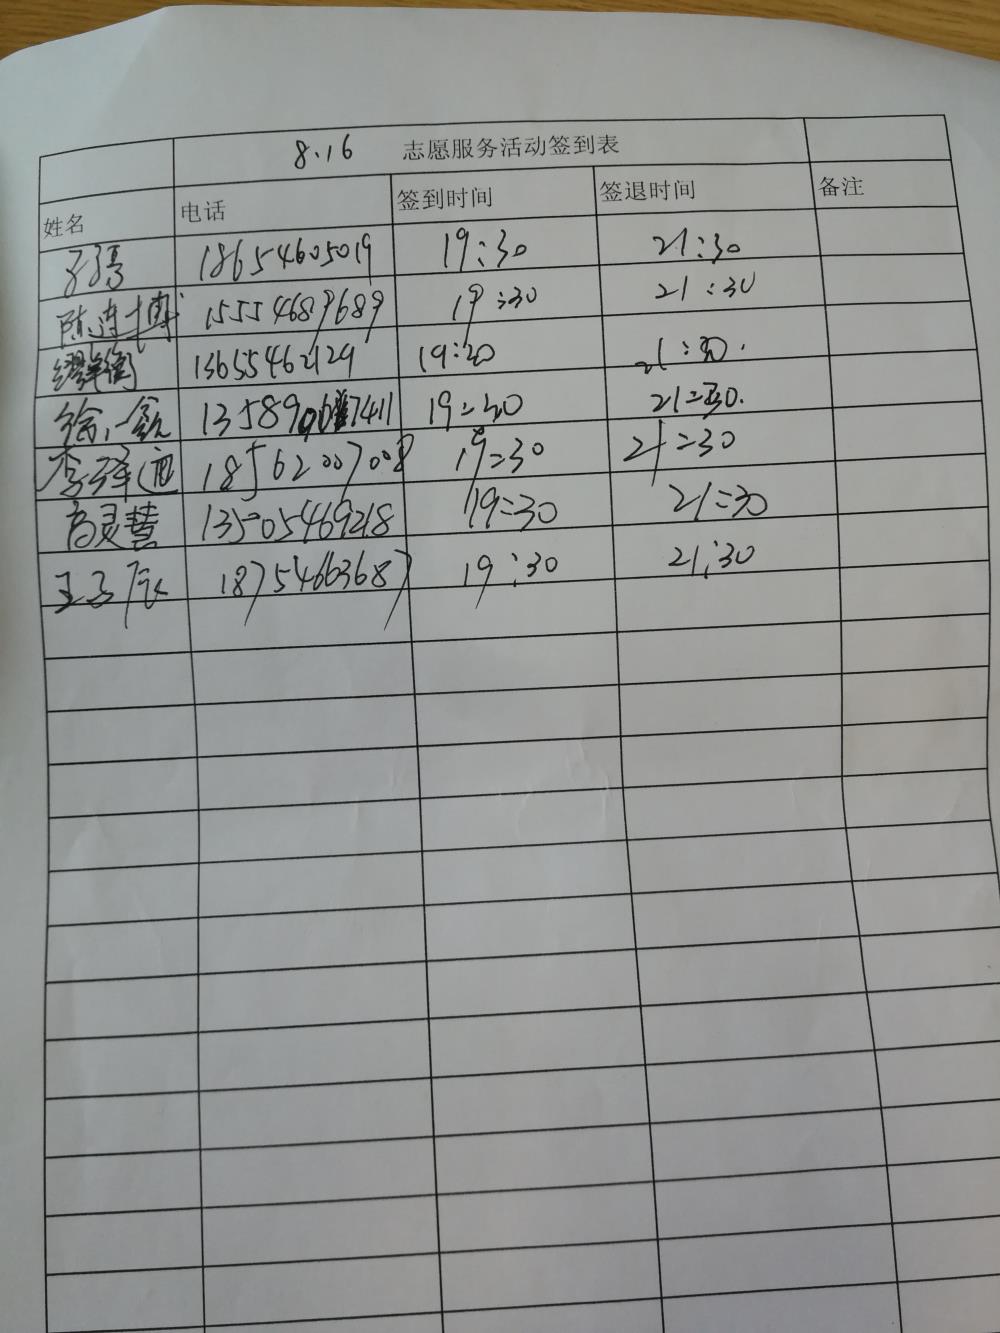 8.16 志愿服务活动签到表
姓名 电话 签到时间 签退时间 备注
18654605019 19:30 21:30
陈连博 15554689689 19:30 21:30
13655462129 19:30 21:30.
徐一 19:30 21:30.
李泽 18562007008 19:30 21:30
高灵慧 13505469218 19:30 21:30
王子辰 18754663687 19:30 21:30